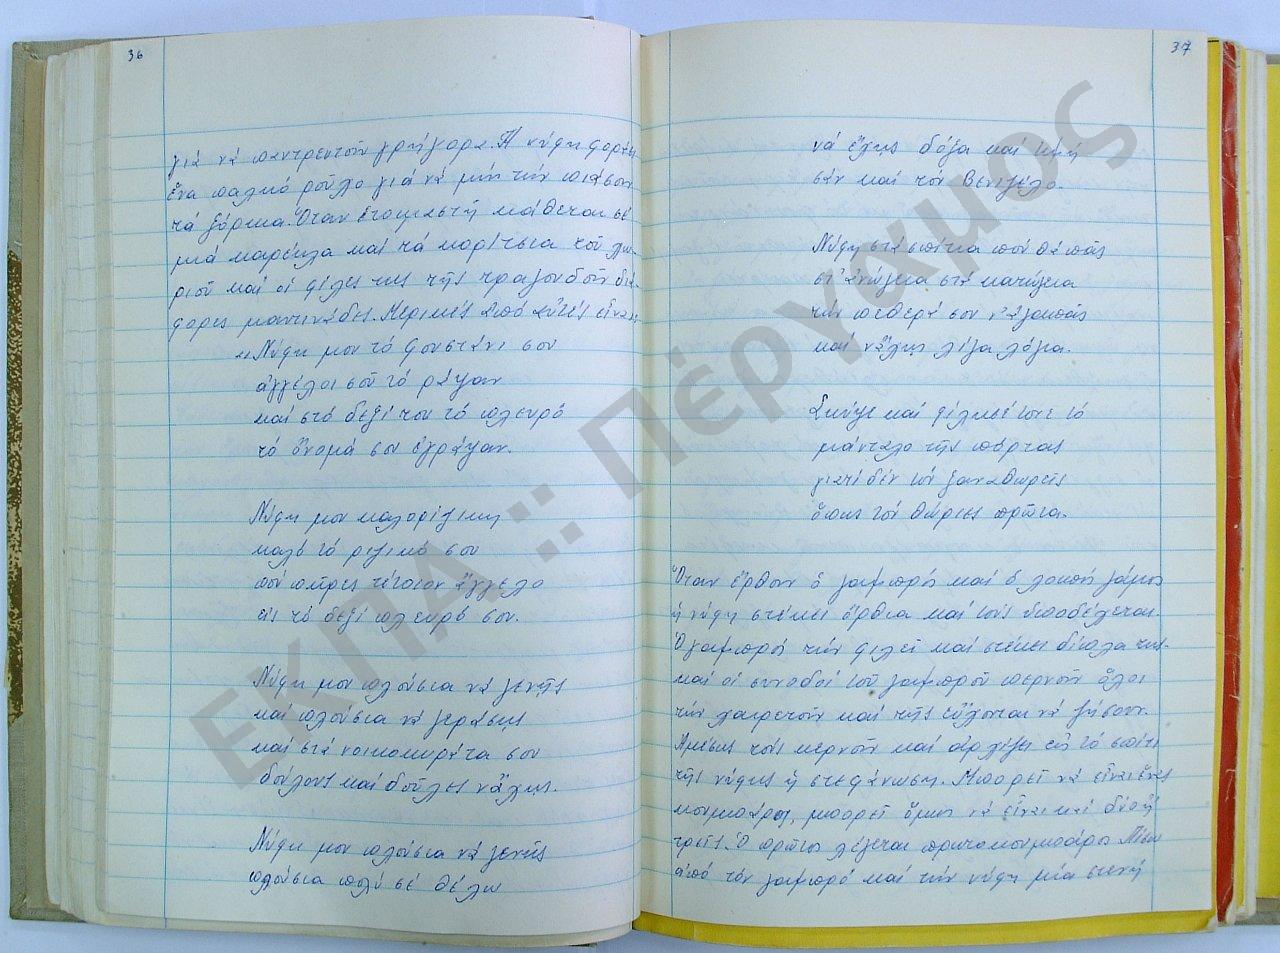 36
γιά νά παντρευτοῦν γρήγορα. Ἡ νύφη φοράει
ἕνα παλιό ροῦχο γιά νά μήν τήν πιάσουν
τά ξόρκια. Ὅταν ἑτοιμαστῆ κάθεται σέ
μιά καρέκλα καί τά κορίτσια τοῦ χω-
ριοῦ καί οἱ φίλες της τῆς τραγουδοῦν διά-
φορες μαντινάδες. Μερικές ἀπό αὐτές εἶναι:
"Νύφη μου τό φουστάνι σου
ἀγγέλοι σοῦ τό ράψαν
καί στό δεξί του τό πλευρό
τό ὄνομά σου ἐγράψαν.
Νύφη μου καλορίζικη
καλό τό ριζικό σου
πού πῆρες τέτοιον ἄγγελο
εἰς τό δεξί πλευρό σου.
Νύφη μου πλούσια νά γενῆς
καί πλούσια νά γεράσης
καί στά νοικοκυράτα σου
δούλους καί δοῦλες νἄχης.
Νύφη μου πλούσια νά γενῆς
πλούσια πολύ σέ θέλω
37
νά ἔχης δόξα καί τιμή
σάν καί τόν Βενιζέλο.
Νύφη στά σπίτια πού θά πᾶς
στ' ἀνώγεια στά κατώγεια
τήν πεθερά σου ν' ἀγαπᾶς
καί νἄχης λίγα λόγια.
Σκύψε καί φίλησέ τονε τό
μάνταλο τῆς πόρτας
γιατί δέν τόν ξαναθωρεῖς
ὅπως τόν θώριες πρῶτα.
Ὅταν ἔρθουν ὁ γαμπρός καί ὁ λοιπός γάμος
ἡ νύφη στέκει ὄρθια καί τούς ὑποδέχεται.
Ὁ γαμπρός τήν φιλεῖ καί στέκει δίπλα της
καί οἱ συνοδοί τοῦ γαμπροῦ περνοῦν ὅλοι
τήν χαιρετοῦν καί τῆς εὔχονται νά ζήσουν.
Ἀμέσως τούς κερνοῦν καί ἀρχίζει εἰς τό σπίτι
τῆς νύφης ἡ στεφάνωση. Μπορεῖ νά εἶναι ἕνας
κουμπάρος, μπορεῖ ὅμως νά εἶναι καί δύο ἤ
τρεῖς. Ὁ πρῶτος λέγεται πρωτοκουμπάρος. Πίσω
ἀπό τόν γαμπρό καί τήν νύφη μία στενή
ΕΚΠΑ :: Πέργαμος